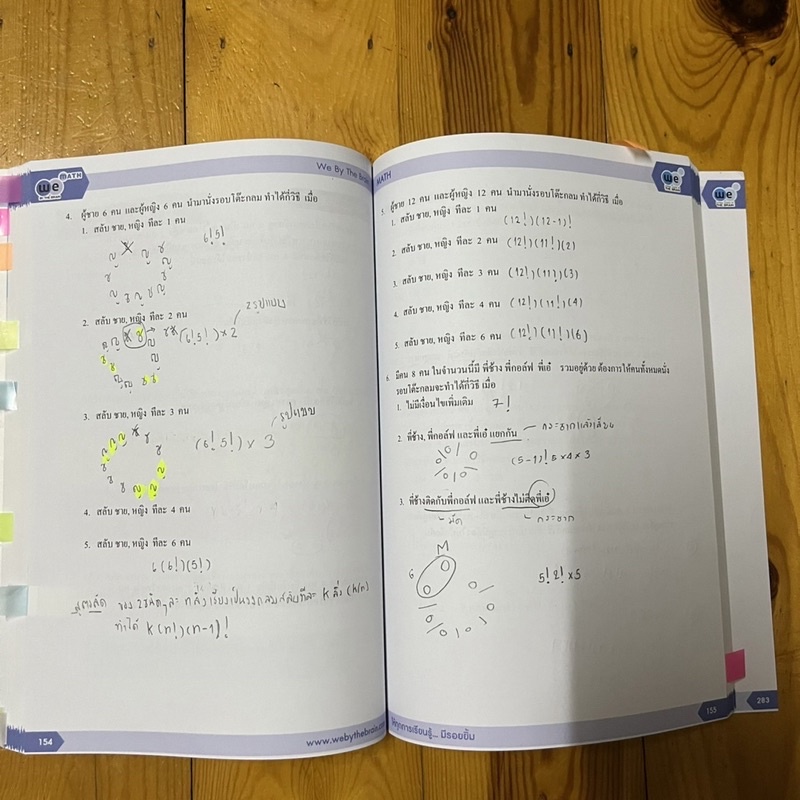 We MATH
BY THE BRAIN
We By The Brain
4. ผู้ชาย 6 คน และผู้หญิง 6 คน นำมานั่งรอบโต๊ะกลม ทำได้กี่วิธี เมื่อ
1. สลับ ชาย, หญิง ทีละ 1 คน
6!5!
2. สลับ ชาย, หญิง ทีละ 2 คน
2 รูปแบบ
(6!5!) × 2
3. สลับ ชาย, หญิง ทีละ 3 คน
รูปแบบ
(6!5!) × 3
4. สลับ ชาย, หญิง ทีละ 4 คน
5. สลับ ชาย, หญิง ทีละ 6 คน
6(6!)(5!)
สูตรลัด ของ 2 ชนิด ๆ ละ n สิ่ง เรียงเป็นวงกลมสลับทีละ K สิ่ง (K|n)
ทำได้ K(n!)(n-1)!
154
www.webythebrain.com
MATH
We
5. ผู้ชาย 12 คน และผู้หญิง 12 คน นำมานั่งรอบโต๊ะกลม ทำได้กี่วิธี เมื่อ
1. สลับ ชาย, หญิง ทีละ 1 คน (12!)(12-1)!
2. สลับ ชาย, หญิง ทีละ 2 คน (12!)(11!)(2)
3. สลับ ชาย, หญิง ทีละ 3 คน (12!)(11!)(3)
4. สลับ ชาย, หญิง ทีละ 4 คน (12!)(11!)(4)
5. สลับ ชาย, หญิง ทีละ 6 คน (12!)(11!)(6)
6. มีคน 8 คน ในจำนวนนี้มี พี่ช้าง พี่กอล์ฟ พี่เอ๋ รวมอยู่ด้วย ต้องการให้คนทั้งหมดนั่ง
รอบโต๊ะกลมจะทำได้กี่วิธี เมื่อ
1. ไม่มีเงื่อนไขเพิ่มเติม 7!
2. พี่ช้าง, พี่กอล์ฟ และพี่เอ๋ แยกกัน
(5-1)! 5×4×3
3. พี่ช้างติดกับพี่กอล์ฟ และพี่ช้างไม่ติดพี่เอ๋
มัด
กระจาย
M
6
5! 2! ×5
ให้ทุกการเรียนรู้... มีรอยยิ้ม
155
We
283